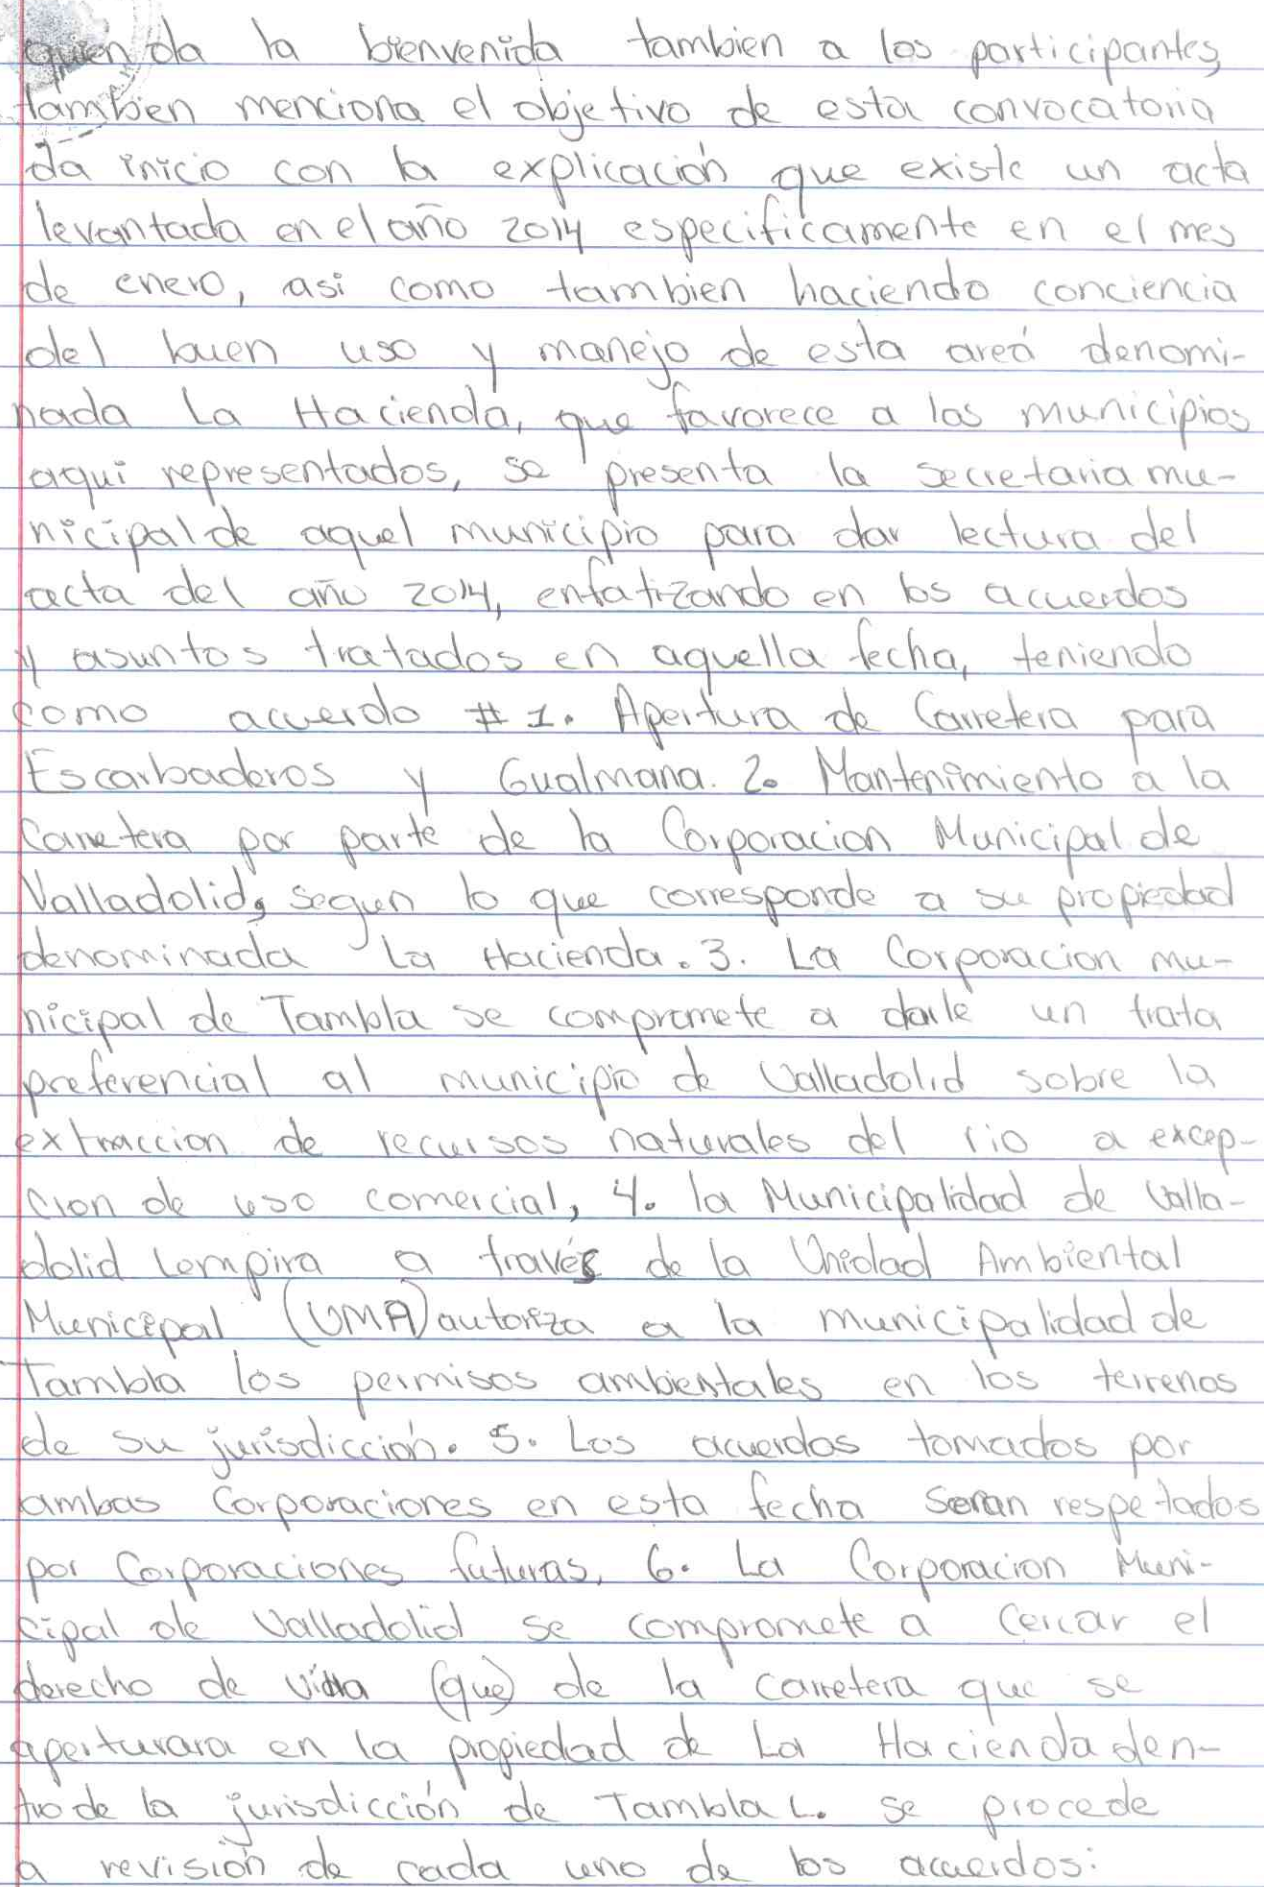 quien da la bienvenida tambien a los participantes,
tambien menciona el objetivo de esta convocatoria
da inicio con la explicación que existe un acta
levantada en el año 2014 especificamente en el mes
de enero, asi como tambien haciendo conciencia
del buen uso y manejo de esta areá denomi-
nada La Hacienda, que favorece a los municipios
aqui representados, se presenta la secretaria mu-
nicipal de aquel municipio para dar lectura del
acta del año 2014, enfatizando en los acuerdos
y asuntos tratados en aquella fecha, teniendo
como acuerdo # 1. Apertura de Carretera para
Escarbaderos y Gualmana. 2. Mantenimiento a la
Carretera por parte de la Corporacion Municipal de
Valladolid, segun lo que corresponde a su propiedad
denominada La Hacienda. 3. La Corporacion mu-
nicipal de Tambla se compromete a darle un trata
preferencial al municipio de Valladolid sobre la
extraccion de recursos naturales del rio a excep-
cion de uso comercial, 4. la Municipalidad de Valla-
dolid Lempira a través de la Unidad Ambiental
Municipal (UMA) autoriza a la municipalidad de
Tambla los permisos ambientales en los terrenos
de su jurisdicción. 5. Los acuerdos tomados por
ambas Corporaciones en esta fecha seran respetados
por Corporaciones futuras, 6. La Corporacion Muni-
cipal de Valladolid se compromete a cercar el
derecho de (que) de la carretera que se
aperturara en la propiedad de La Hacienda den-
tro de la jurisdicción de Tambla L. se procede
a revisión de cada uno de los acuerdos: